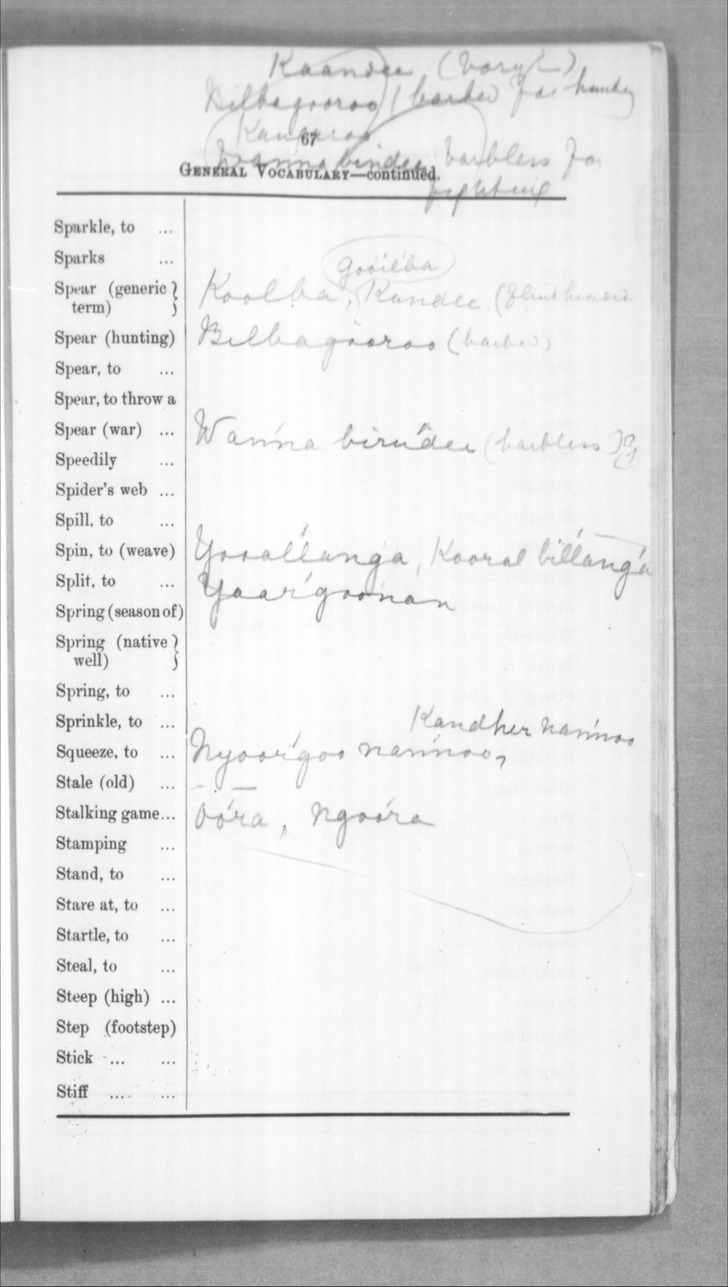 Kaandee
Bilbagooroo (barbed for hunting
Kangaroo
67
Wanna bindee barbless for
GENERAL VOCABULARY—continued.
fighting
Sparkle, to ...
Sparks ...
gooilba
Spear (generic term) Koolba, Kandee (flint headed
Spear (hunting) Bilbagooroo (barbed)
Spear, to ...
Spear, to throw a
Spear (war) ... Wanna birudee (barbless)
Speedily ...
Spider's web ...
Spill, to ...
Spin, to (weave) Yooallanga, Kooral billanga
Split, to ... Yaargoonan
Spring (season of)
Spring (native well)
Spring, to ...
Sprinkle, to ...
Kandher nannoo
Squeeze, to ... Nyoorgoo nannoo,
Stale (old) ...
Stalking game... Oóra, Ngoóra
Stamping ...
Stand, to ...
Stare at, to ...
Startle, to ...
Steal, to ...
Steep (high) ...
Step (footstep)
Stick ... ...
Stiff ... ...